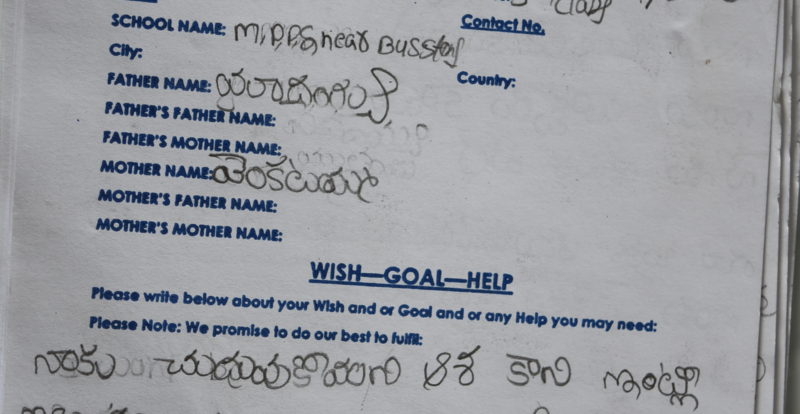 Class
SCHOOL NAME: M.P.P.S, near Busstay Contact No.
City:
FATHER NAME: Country:
FATHER'S FATHER NAME:
FATHER'S MOTHER NAME:
MOTHER NAME:
MOTHER'S FATHER NAME:
MOTHER'S MOTHER NAME:
WISH—GOAL—HELP
Please write below about your Wish and or Goal and or any Help you may need:
Please Note: We promise to do our best to fulfil:
నాకు చదువుకోవాలని ఆశ కాని ఇంట్లో